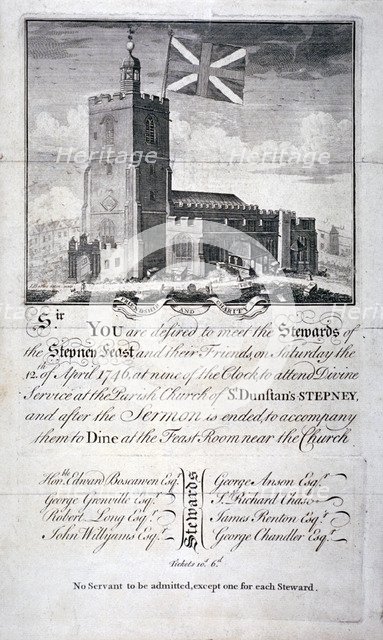 Heritage Heritage
FRIENDSHIP AND CHARITY
Sir
YOU are desired to meet the Stewards of
the Stepney Feast and their Friends, on Saturday the
12.th of April 1746, at nine of the Clock to attend Divine
Service at the Parish Church of St. Dunstan's STEPNEY,
and after the Sermon is ended, to accompany
them to Dine at the Feast Room near the Church
Stewards
Hon.ble Edward Boscawen Esq.r
George Grenville Esq.r
Robert Long Esq.r
John Willyams Esq.r
George Anson Esq.r
Sr. Richard Chase
James Renton Esq.r
George Chandler Esq.r
Tickets 10.s 6.d
No Servant to be admitted, except one for each Steward.